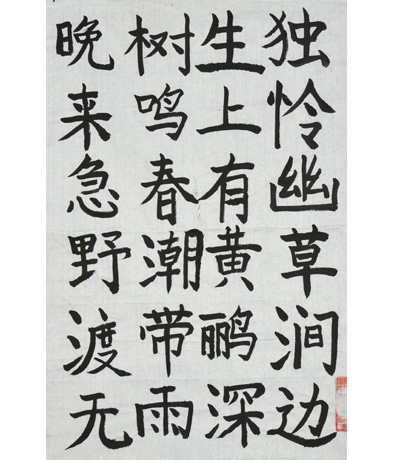 独怜幽草涧边
生上有黄鹂深
树鸣春潮带雨
晚来急野渡无